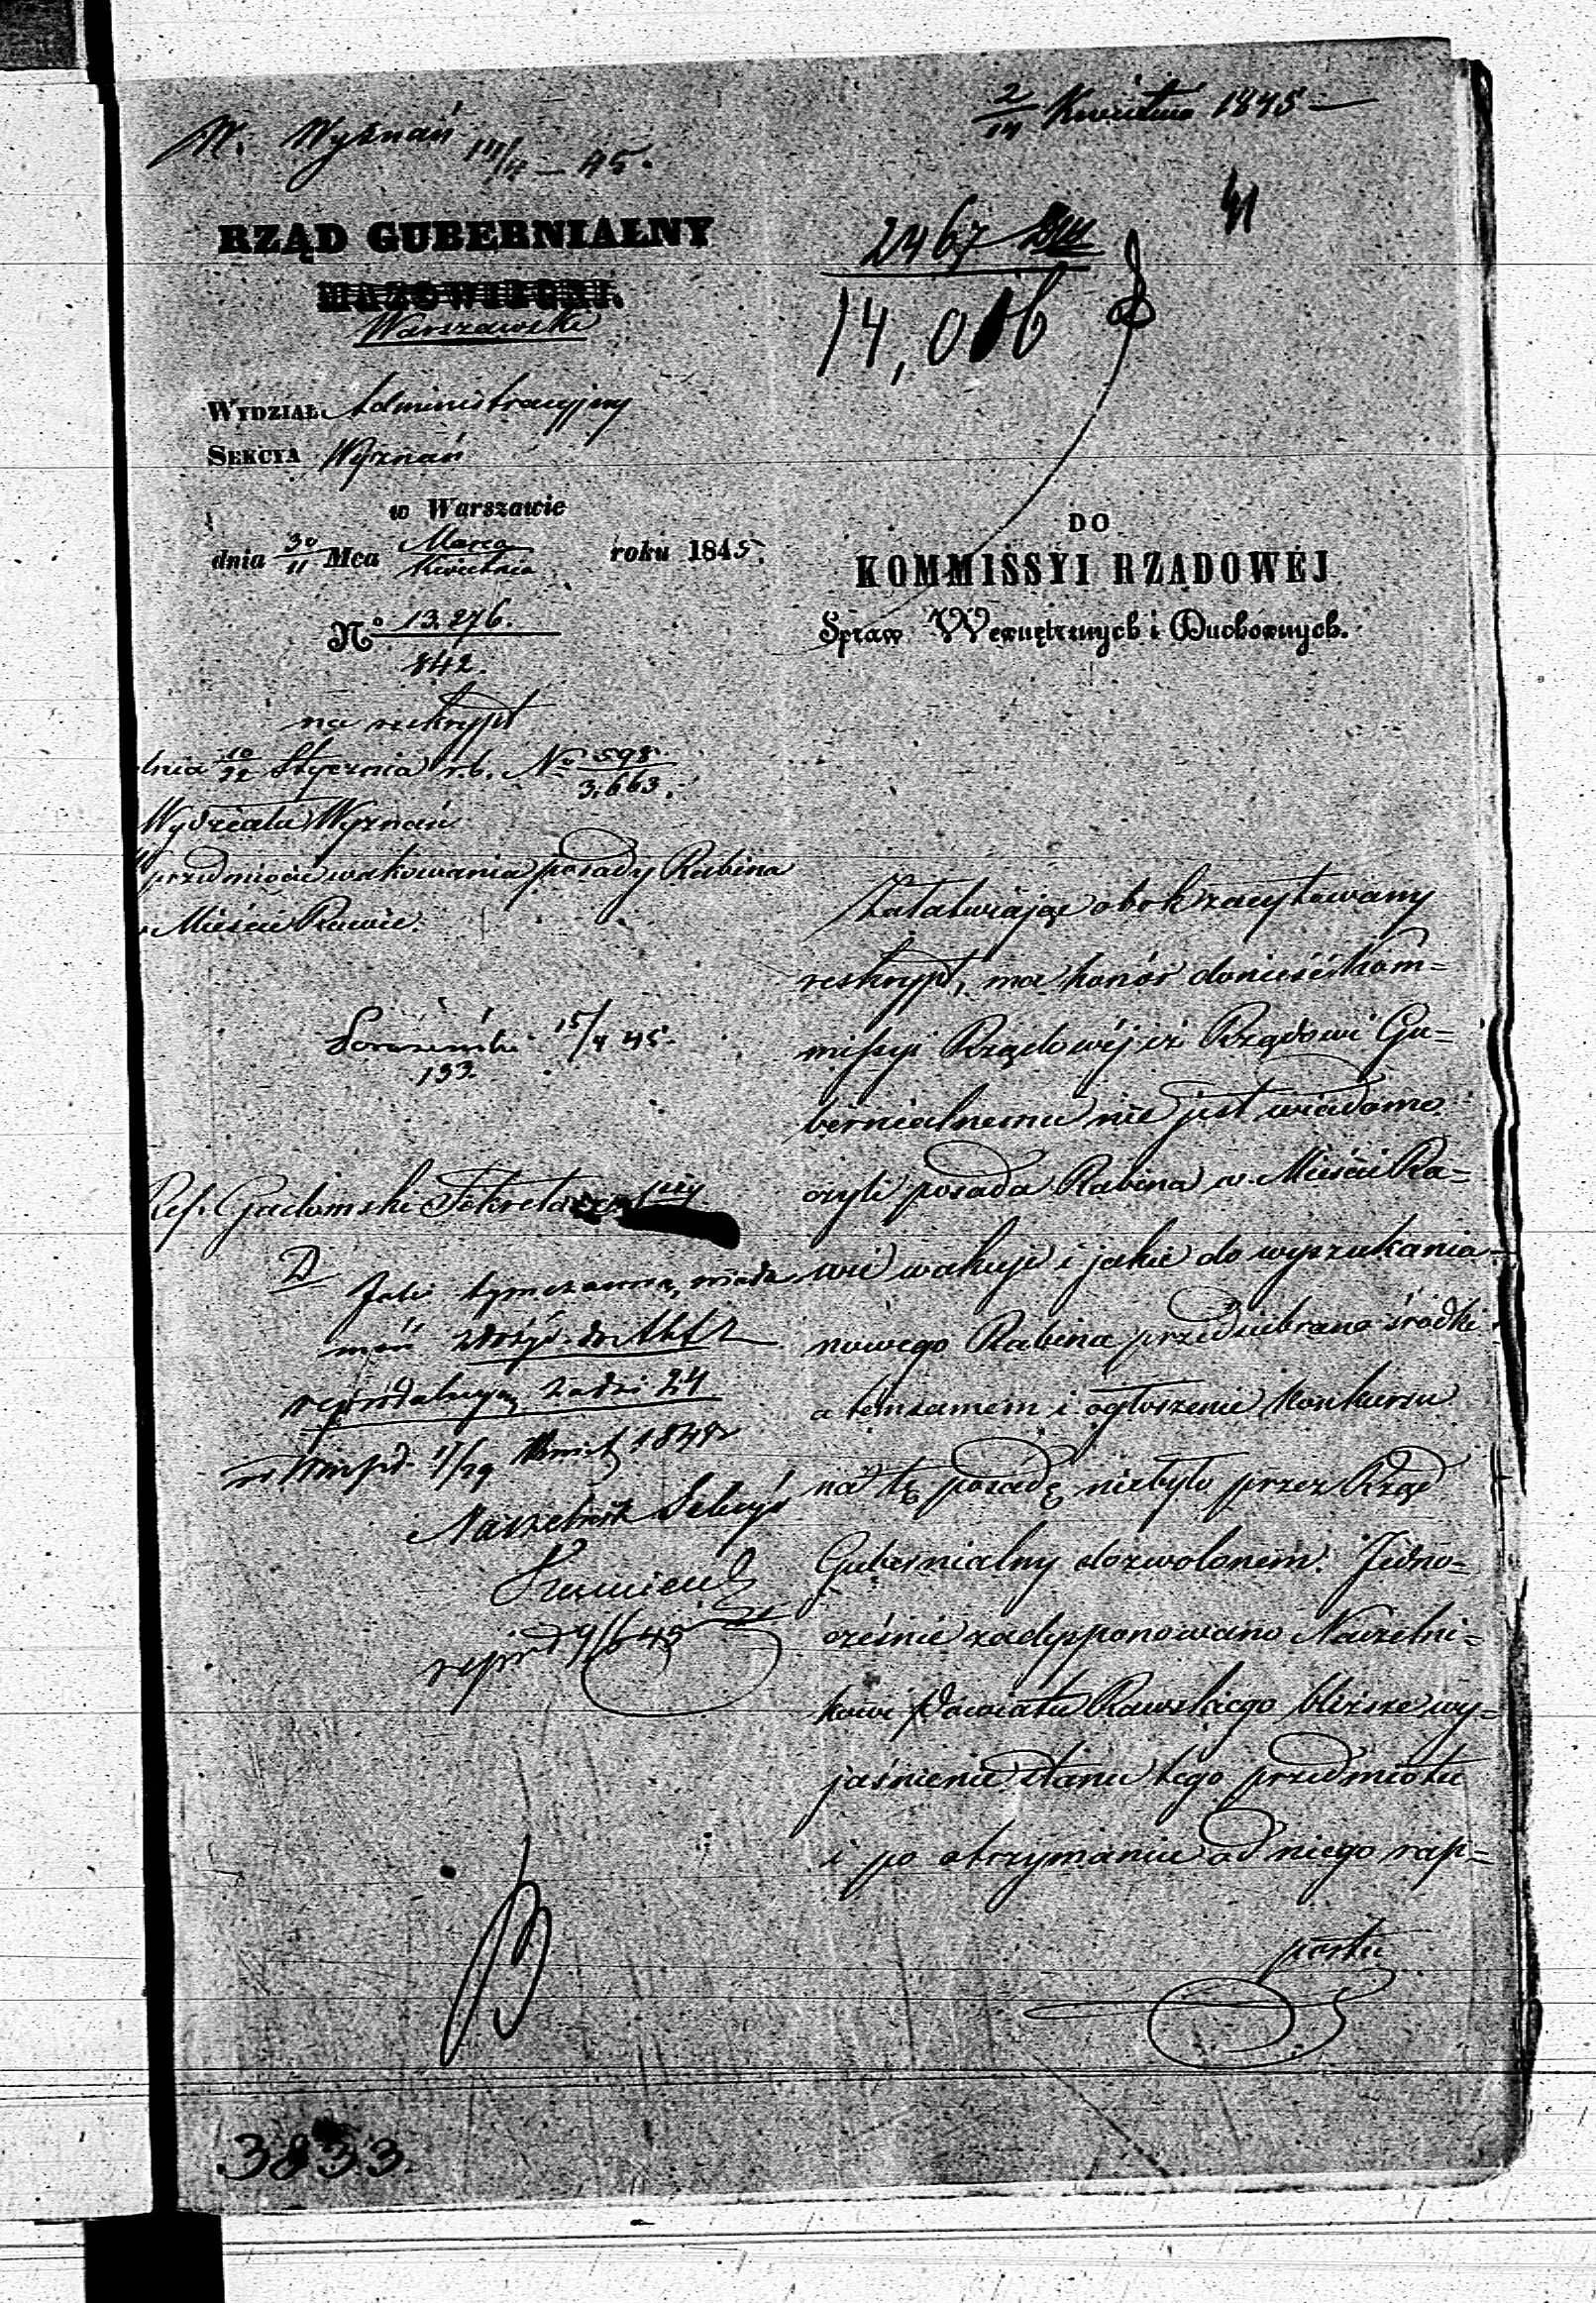 W. Wyznań 14/4 – 45.
2/14 Kwietnia 1845 –
41
RZĄD GUBERNIALNY
MAZOWIECKI.
Warszawski
2467
14,016
WYDZIAŁ Administracyjny
SEKCYA Wyznań
w Warszawie
dnia 30/11 Mca Marca/Kwietnia roku 1845.
No 13.276./842.
DO
KOMMISSYI RZĄDOWÉJ
Spraw Wewnętrznych i Duchownych.
na reskrypt
dnia 10/22 Stycznia r.b. No 598/3.663.
Wydziału Wyznań
przedmiocie wakowania posady Rabina
Mieście Rawie.
15/4 45.
133.
Ref. Gadomski Sekretarz
D
Jako tymczasową, wiado
mość złożyć do Akt
24
Naczelnik Sekcyi
Załatwiając obok zacytowany
reskrypt, ma honór donieść Kom=
missyi Rządowéj iż Rządowi Gu=
bernialnemu nie jest wiadomo
czyli posada Rabina w Mieście Ra=
wie wakuje i jakie do wyszukania
nowego Rabina przedsiębrano środki
a temsamem i ogłoszenie konkursu
na tę posadę niebyło przez Rząd
Gubernialny dozwolonem. Jedno=
cześnie zadysponowano Naczelni=
kowi Powiatu Rawskiego bliższe wy=
jaśnienie stanu tego przedmiotu
i po otrzymaniu od niego rap=
portu
3833.